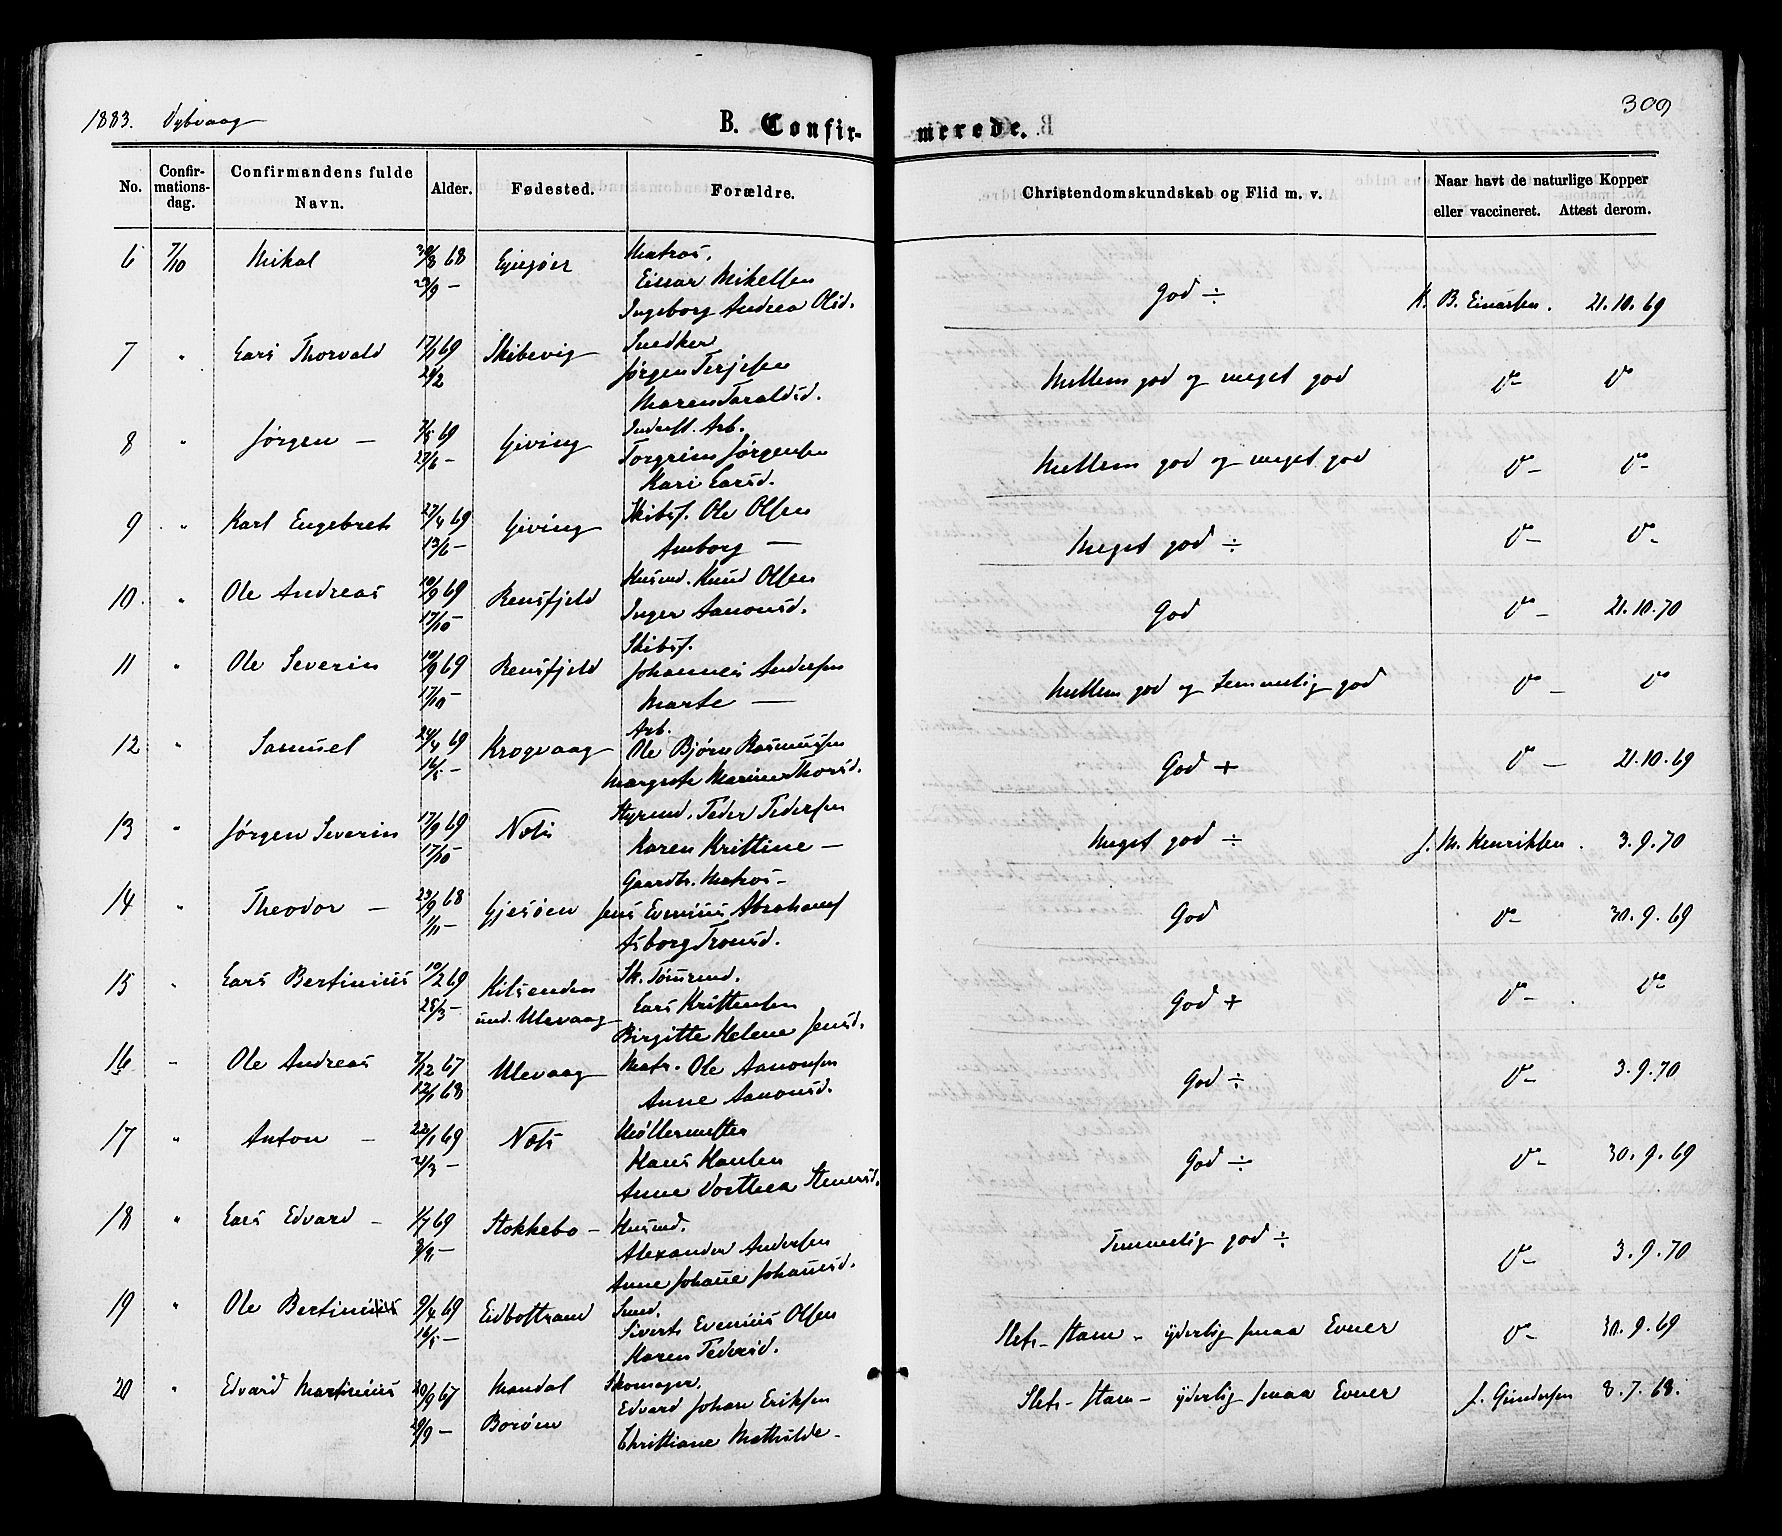 1883. Dybvaag
B. Confirmerede.
309
No. Confirmationsdag. Confirmandens fulde Navn. Alder. Fødested. Forældre. Christendomskundskab og Flid m. v. Naar havt de naturlige Kopper eller vaccineret. Attest derom.
6 7/10 Mikal 30/8 68 Gjesøen Matros. God ÷ K. B. Einarsen. 21.10.69
29/9 — Einar Mikelsen
Ingeborg Andrea Olsd.
7 " Lars Thorvald 17/1 69 Skibevig Snedker Mellem god og meget god D° D°
21/2 Jørgen Terjesen
Maren Taraldsd.
8 " Jørgen — 7/5 69 Gjeving Inderst. Arb. Mellem god og meget god D° D°
27/6 — Torgrim Jørgensen
Kari Larsd.
9 " Karl Engebret 27/4 69 Gjeving Skibsf. Ole Olsen Meget god ÷ D° D°
13/6 — Amborg —
10. " Ole Andreas 10/9 69 Rensfjeld Husmd. Knud Olsen God D° 21.10.70
17/10 — Inger Aanonsd.
11 " Ole Severin 10/9 69 Rensfjeld Skibsf. Mellem god og temmelig god D° — D°
17/10 — Johannes Andersen
Marte —
12 " Samuel 24/4 69 Krogvaag Arb. God + D° — 21.10.69
16/5 — Ole Bjørn Rasmussen
Margrete Marine Thorsd.
13 " Jørgen Severin 17/9 69 Næs Styrmd. Peder Pedersen Meget god ÷ J. M. Henriksen. 3.9.70
17/10 Karen Kristine —
14 " Theodor — 23/9 68 Gjesøen Gaardbr. Matros — God D° 30.9.69
1/11 — Jens Evenius Abrahams
Asborg Tronsd.
15 " Lars Bertinius 10/2 69 Kilsenden und. Ulevaag Sk. Tømrmd. God + D° D°
25/3 — Lars Kristensen
Birgitte Helene Jensd.
16 " Ole Andreas 7/12 67 Ulevaag Matr. Ole Aanonsen God ÷ D° 3.9.70
12/1 68 Anne Aanonsd.
17 " Anton — 22/1 69 Næs Møllermester God ÷ D° 30.9.69
21/3 — Hans Hansen
Anne Dorthea Stenersd.
18 " Lars Edvard — 1/7 69 Stokkebo — Husmd. Temmelig god ÷ D° 3.9.70
Alexander Andersen
Anne Johane Johansd.
19 " Ole Bertinius 9/4 69 Eidbostrand Smd. Slet — Stam — yderlig smaa Evner D° 30.9.69
16/5 — Siverts Evenius Olsen
Karen Pedersd.
20 " Edvard Martinius 20/9 67 Mandal Skomager. Slet — Stam — yderlig smaa Evner J. Gundersen 8.7.68.
29/9 — Borøen Edvard Johan Eriksen
Christiane Mathilde —